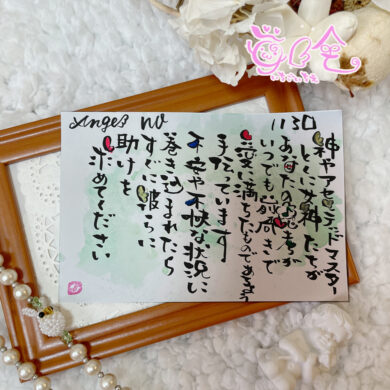 Angel no 1130
神やアセンデッドマスター
とくに女神たちが
あなたの思考が
いつでも前向きで
愛に満ちたものであるよう
手伝っています
不安や不快な状況に
巻き込まれたら
すぐに彼らに
助けを
求めてください